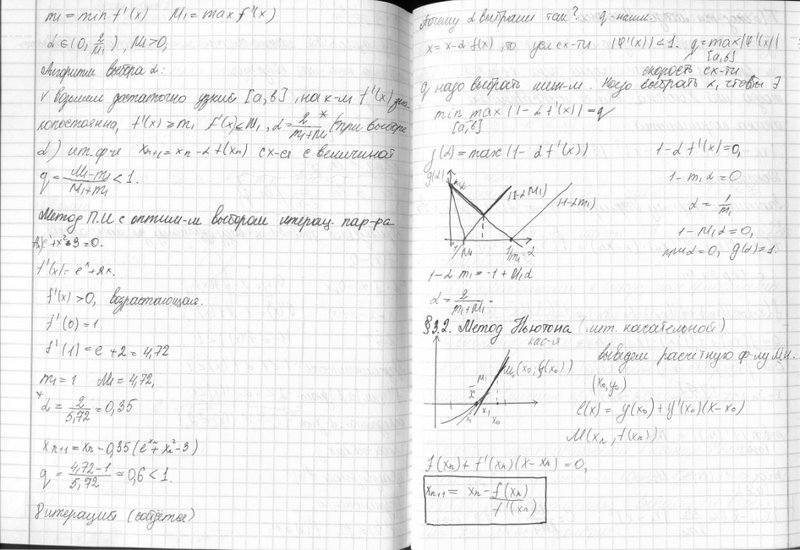 m₁ = min f'(x)    M₁ = max f'(x)
α ∈ (0, 2/M₁), M₁>0,
Алгоритм выбора α:
√ Возьмем достаточно узкий [a,b], на к-м f'(x) зна-
копостоянна, f'(x) ≥ m₁  f'(x) ≤ M₁, α = 2/(m₁+M₁)* (при выборе
α) ит. ф-я  xₙ₊₁ = xₙ - α f(xₙ) сх-ся с величиной
q = (M₁-m₁)/(M₁+m₁) < 1.
Метод П.И. с оптим-м выбором итерац. пар-ра
eˣ+x²-3 = 0.
f'(x) = eˣ + 2x.
f'(x) > 0, возрастающая.
f'(0) = 1
f'(1) = e + 2 = 4,72
m₁ = 1    M₁ = 4,72,
α* = 2/5,72 = 0,35
xₙ₊₁ = xₙ - 0,35 (e^xₙ + xₙ² - 3)
q = (4,72-1)/5,72 ≈ 0,6 < 1.
8 итераций (сойдется)
Почему α выбрали так?
x = x - α f(x), то усл сх-ти |φ'(x)| < 1. q = max|φ'(x)|
[a,b]
скорость сх-ти
q надо выбрать Надо выбрать α, чтобы ∃
min max |1 - α f'(x)| = q
[a,b]
g(α) = max |1 - α f'(x)|
1 - α f'(x) = 0,
g(α)
|1-αM₁|
|1-αm₁|
1/M₁
1/m₁
α
1 - m₁α = 0
α = 1/m₁
1 - M₁α = 0,
при α = 0, g(α) = 1.
1 - α m₁ = -1 + M₁α
α = 2/(m₁+M₁).
§3.2. Метод Ньютона (мет. касательной)
кас-я
M₀(x₀, f(x₀))
M₁
x̄
x₁
x₀
выведем расчётную ф-лу М.Н.
(x₀, y₀)
l(x) = y(x₀) + y'(x₀)(x-x₀)
M(xₙ, f(xₙ))
f(xₙ) + f'(xₙ)(x-xₙ) = 0,
xₙ₊₁ = xₙ - f(xₙ)/f'(xₙ)